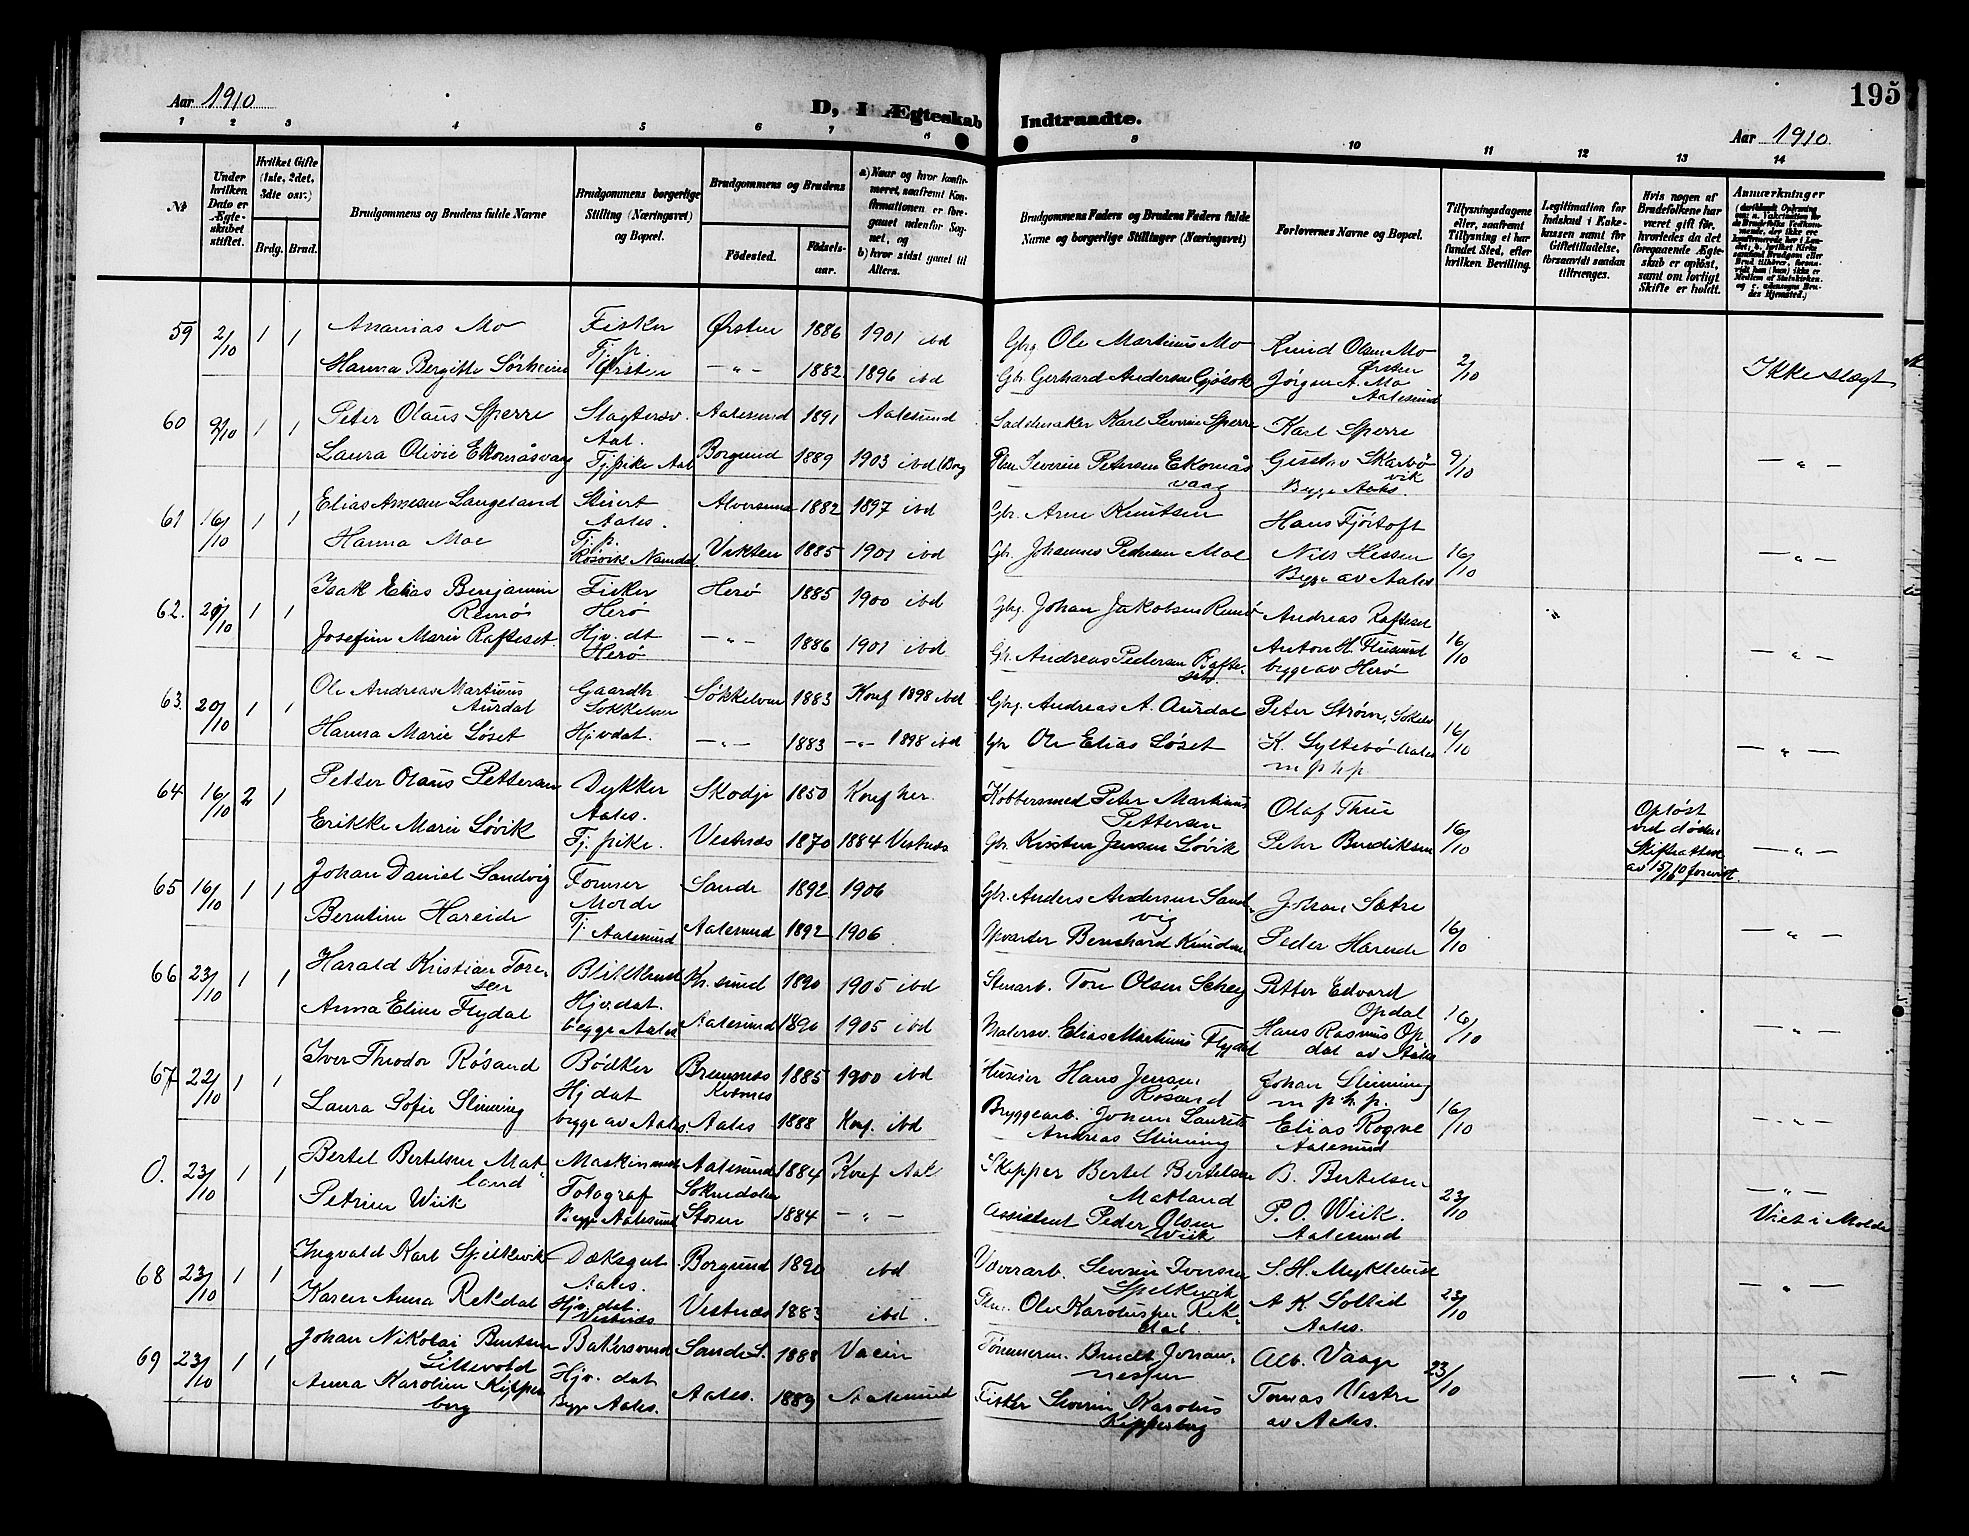 195
Aar 1910
D, I Ægteskab Indtraadte.
Aar 1910
1 2 3 4 5 6 7 8 9 10 11 12 13 14
№
Under hvilken Dato er Ægteskabet stiftet.
Hvilket Gifte (1ste, 2det, 3die osv.)
Brdg. Brud.
Brudgommens og Brudens fulde Navne
Brudgommens borgerlige Stilling (Næringsvei) og Bopæl.
Brudgommens og Brudens
Fødested. Fødselsaar.
a) Naar og hvor konfirmeret, saafremt Konfirmationen er foregaaet udenfor Sognet, og
b) hvor sidst gaaet til Alters.
Brudgommens Faders og Brudens Faders fulde Navne og borgerlige Stillinger (Næringsvei)
Forlovernes Navne og Bopæl.
Tillysningsdagene eller, saafremt Tillysning ei har fundet Sted, efter hvilken Bevilling.
Legitimation for Indskud i Enkekassen samt for Giftetilladelse, forsaavidt saadan tiltrænges.
Hvis nogen af Brudefolkene har været gift før, hvorledes da det foregaaende Ægteskab er opløst, samt om lovligt Skifte er holdt.
Anmærkninger
59 2/10 1 1 Ananias Mo Fisker Ørsten 1886 1901 ibd Gbrg Ole Martinus Mo Knud Olsen Mo Ørsten 2/10 Ikke slegt
Hanna Bergitte Sørheim Tj. p. Ørsten -"- 1882 1896 ibd Gbr Gerhard Andersen Gjøsok Jørgen A. Mo Aalesund
60 9/10 1 1 Peter Olaus Sperre Slagtersv Aal. Aalesund 1891 Aalesund Sadelmaker Karl Severin Sperre Karl Sperre 9/10 -"-
Laura Olivie Ekornåsvaag Tj. pike Aal Borgund 1889 1903 ibd (Borg Severin Petersen Ekornåsvaag Gustav Skarbøvik Begge Aales.
61 16/10 1 1 Elias Arnesen Langeland Stuert Aales. Alversund 1882 1897 ibd Gbr. Arne Knutsen Hans Fjörtoft 16/10 -"-
Hanna Moe Tj. p. Rösvik Namdal Vikten 1885 1901 ibd Gbr. Johannes Pedersen Moe Nils Hessen Begge av Aales
62. 20/10 1 1 Isak Elias Benjamin Remøi Fisker Herø Herø 1885 1900 ibd Gbrg Johan Jakobsen Remø Andreas Rafteset " 16/10 -"-
Josefine Marie Rafteset Hjv. dt Herø -"- 1886 1901 ibd Gbr. Andreas Pedersen Rafteset Anton H. Flusund begge av Herø
63. 20/10 1 1 Ole Andreas Martinus Aurdal Gaardb Søkkelven Søkkelven 1883 Konf 1898 ibd Gbrg Andreas A. Aurdal Peter Strøm, Søkelv 16/10 -"-
Hanna Marie Løset Hjvdat. -"- 1883 -"- 1898 ibd Gbr Ole Elias Løset K. Syltebø Aales m. p. h. p.
64 16/10 2 1 Petter Olaus Pettersen Dykker Aales. Skodje 1850 Konf her. Kobbersmed Peter Martinus Pettersen Olaf Thue 16/10 Opløst ved døden Skifteattest av 15/10 10 forevist. -"-
Erikke Marie Løvik Tj. pike. Vestnes 1870 1884 Vestnes Gbr. Kristen Jensen Løvik Peter Bendiksen
65 16/10 1 1 Johan Daniel Sandvig Former Molde Sande 1892 1906 Gbr. Anders Andersen Sandvig Johan Sætre 16/10 -"-
Berntine Hareide Tj. Aalesund Aalesund 1892 1906 Bernhard Knudsen Peder Hareide
66 23/10 1 1 Harald Kristian Toresen Kr.sund 1890 1905 ibd Stenarb. Tore Olsen Schey Petter Edvard Opdal 16/10 -"-
Anna Eline Flydal Hjvdat. begge Aales Aalesund 1890 1905 ibd Malersv. Elias Martinus Flydal Hans Rasmus Opdal av Aales
67 22/10 1 1 Iver Theodor Røsand Bødker Bremsnes Kvernes 1885 1900 ibd Huseier Hans Jensen Røsand Johan Slinning m. p. h. p. 16/10 -"-
Laura Sofie Slinning Hjdat begge av Aales. Aales 1888 Konf. ibd Bryggearb. Johan Laurits Andreas Slinning Elias Rogne Aalesund
0. 23/10 1 1 Bertel Bertelsen Matland Maskinmest Aalesund 1884 Konf Aal Skipper Bertel Bertelsen Matland B. Bertelsen 23/10 -"-
Petrine Wiik Fotograf Begge Aalesund Soknedalen Støren 1884 -"- Assistent Peder Olsen Wiik P. O. Wiik. Aalesund Viet i Molde
68 23/10 1 1 Ingvald Karl Spilkevik Dæksgut Aales. Borgund 1890 ibd Severin Iversen Spelkevik S. H. Myklebust 23/10 -"-
Karen Anna Rekdal Hjv. dat. Vestnes Vestnes 1883 ibd. Ole Karolusen Rekdal A K. Sollid Aales.
69 23/10 1 1 Johan Nikolai Berntsen Littevold Bakersvend Sande S. 1888 Tömmerm. Berndt Johannessen Alb. Vaage 23/10 -"-
Anna Karoline Kipperberg Hjv. dat Begge Aales. Aales. 1889 Aalesund Fisker Severin Karolus Kipperberg Tomas Vestre av Aales.